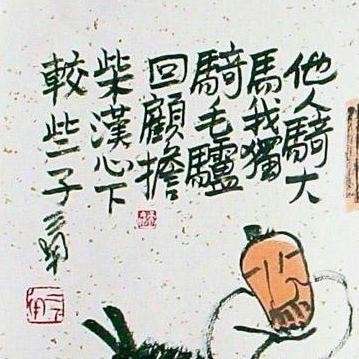 他人騎大
馬我獨
騎毛驢
回顧擔
柴漢心下
較些子